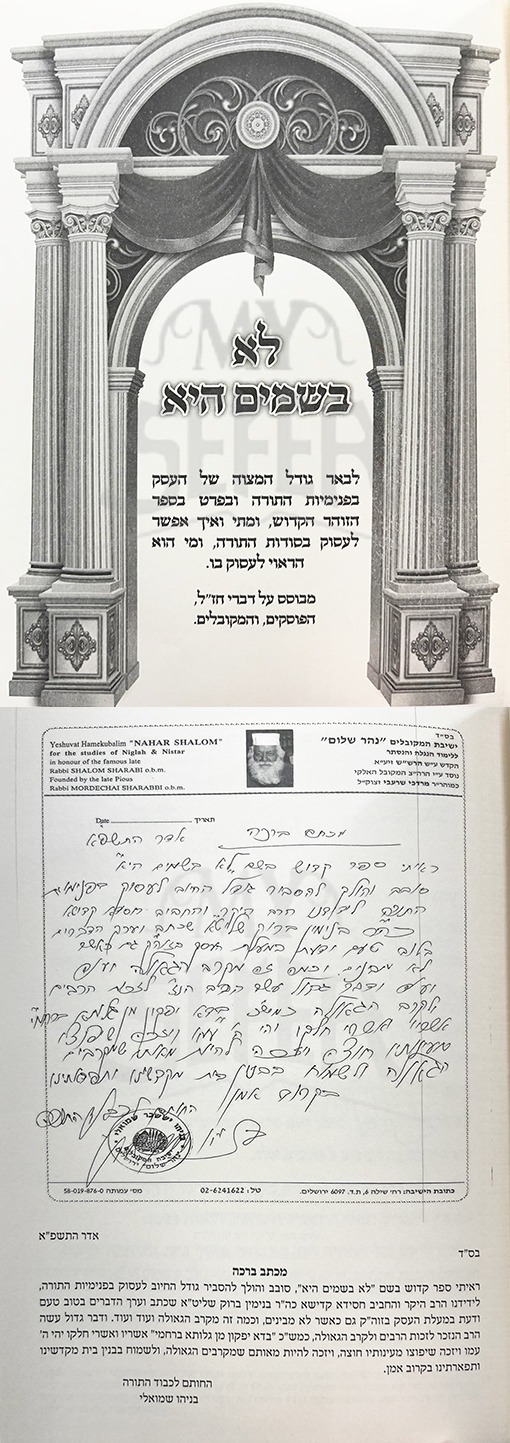 לא
בשמים היא
לבאר גודל המצוה של העסק
בפנימיות התורה ובפרט בספר
הזוהר הקדוש, ומתי ואיך אפשר
לעסוק בסודות התורה, ומי הוא
הראוי לעסוק בו.
מבוסס על דברי חז"ל,
הפוסקים, והמקובלים.
MY
SEFER
Yeshuvat Hamekubalim "NAHAR SHALOM"
for the studies of Niglah & Nistar
in honour of the famous late
Rabbi SHALOM SHARABI o.b.m.
Founded by the late Pious
Rabbi MORDECHAI SHARABBI o.b.m.
בס"ד
ישיבת המקובלים "נהר שלום"
ללימוד הנגלה והנסתר
הקדש ע"ש הרש"ש זיע"א
נוסד ע"י הרה"צ המקובל האלקי
כמוהר"ר מרדכי שרעבי זצוק"ל
Date תאריך
אדר התשפ"א
מכתב ברכה
ראיתי ספר קדוש בשם "לא בשמים היא"
סובב והולך להסביר גודל החיוב לעסוק בפנימיות
התורה לידידנו הרב היקר והחביב חסידא קדישא
כה"ר בנימין ברוק שליט"א שכתב וערך הדברים
בטוב טעם ודעת במעלת העסק בזוה"ק גם כאשר
לא מבינים, וכמה זה מקרב הגאולה ועוד
ועוד ודבר גדול עשה הרב הנז' לזכות הרבים
ולקרב הגאולה כמש"כ בדא יפקון מן גלותא ברחמי
אשריו ואשרי חלקו יהי ה' עמו ויזכה שיפוצו
מעינותיו חוצה ויזכה להיות מאותם שמקרבים
הגאולה ולשמוח בבנין בית מקדשינו ותפארתינו
בקרוב אמן
החותם לכבוד התורה
בניהו יששכר שמואלי
כתובת הישיבה: רח' שילה 6, ת.ד. 6097 ירושלים.
טל: 02-6241622
מס' עמותה 58-019-876-0
אדר התשפ"א
בס"ד
מכתב ברכה
ראיתי ספר קדוש בשם "לא בשמים היא", סובב והולך להסביר גודל החיוב לעסוק בפנימיות התורה,
לידידנו הרב היקר והחביב חסידא קדישא כה"ר בנימין ברוק שליט"א שכתב וערך הדברים בטוב טעם
ודעת במעלת העסק בזוה"ק גם כאשר לא מבינים, וכמה זה מקרב הגאולה ועוד ועוד. ודבר גדול עשה
הרב הנזכר לזכות הרבים ולקרב הגאולה, כמש"כ "בדא יפקון מן גלותא ברחמי" אשריו ואשרי חלקו יהי ה'
עמו ויזכה שיפוצו מעינותיו חוצה, ויזכה להיות מאותם שמקרבים הגאולה, ולשמוח בבנין בית מקדשינו
ותפארתינו בקרוב אמן.
החותם לכבוד התורה
בניהו שמואלי